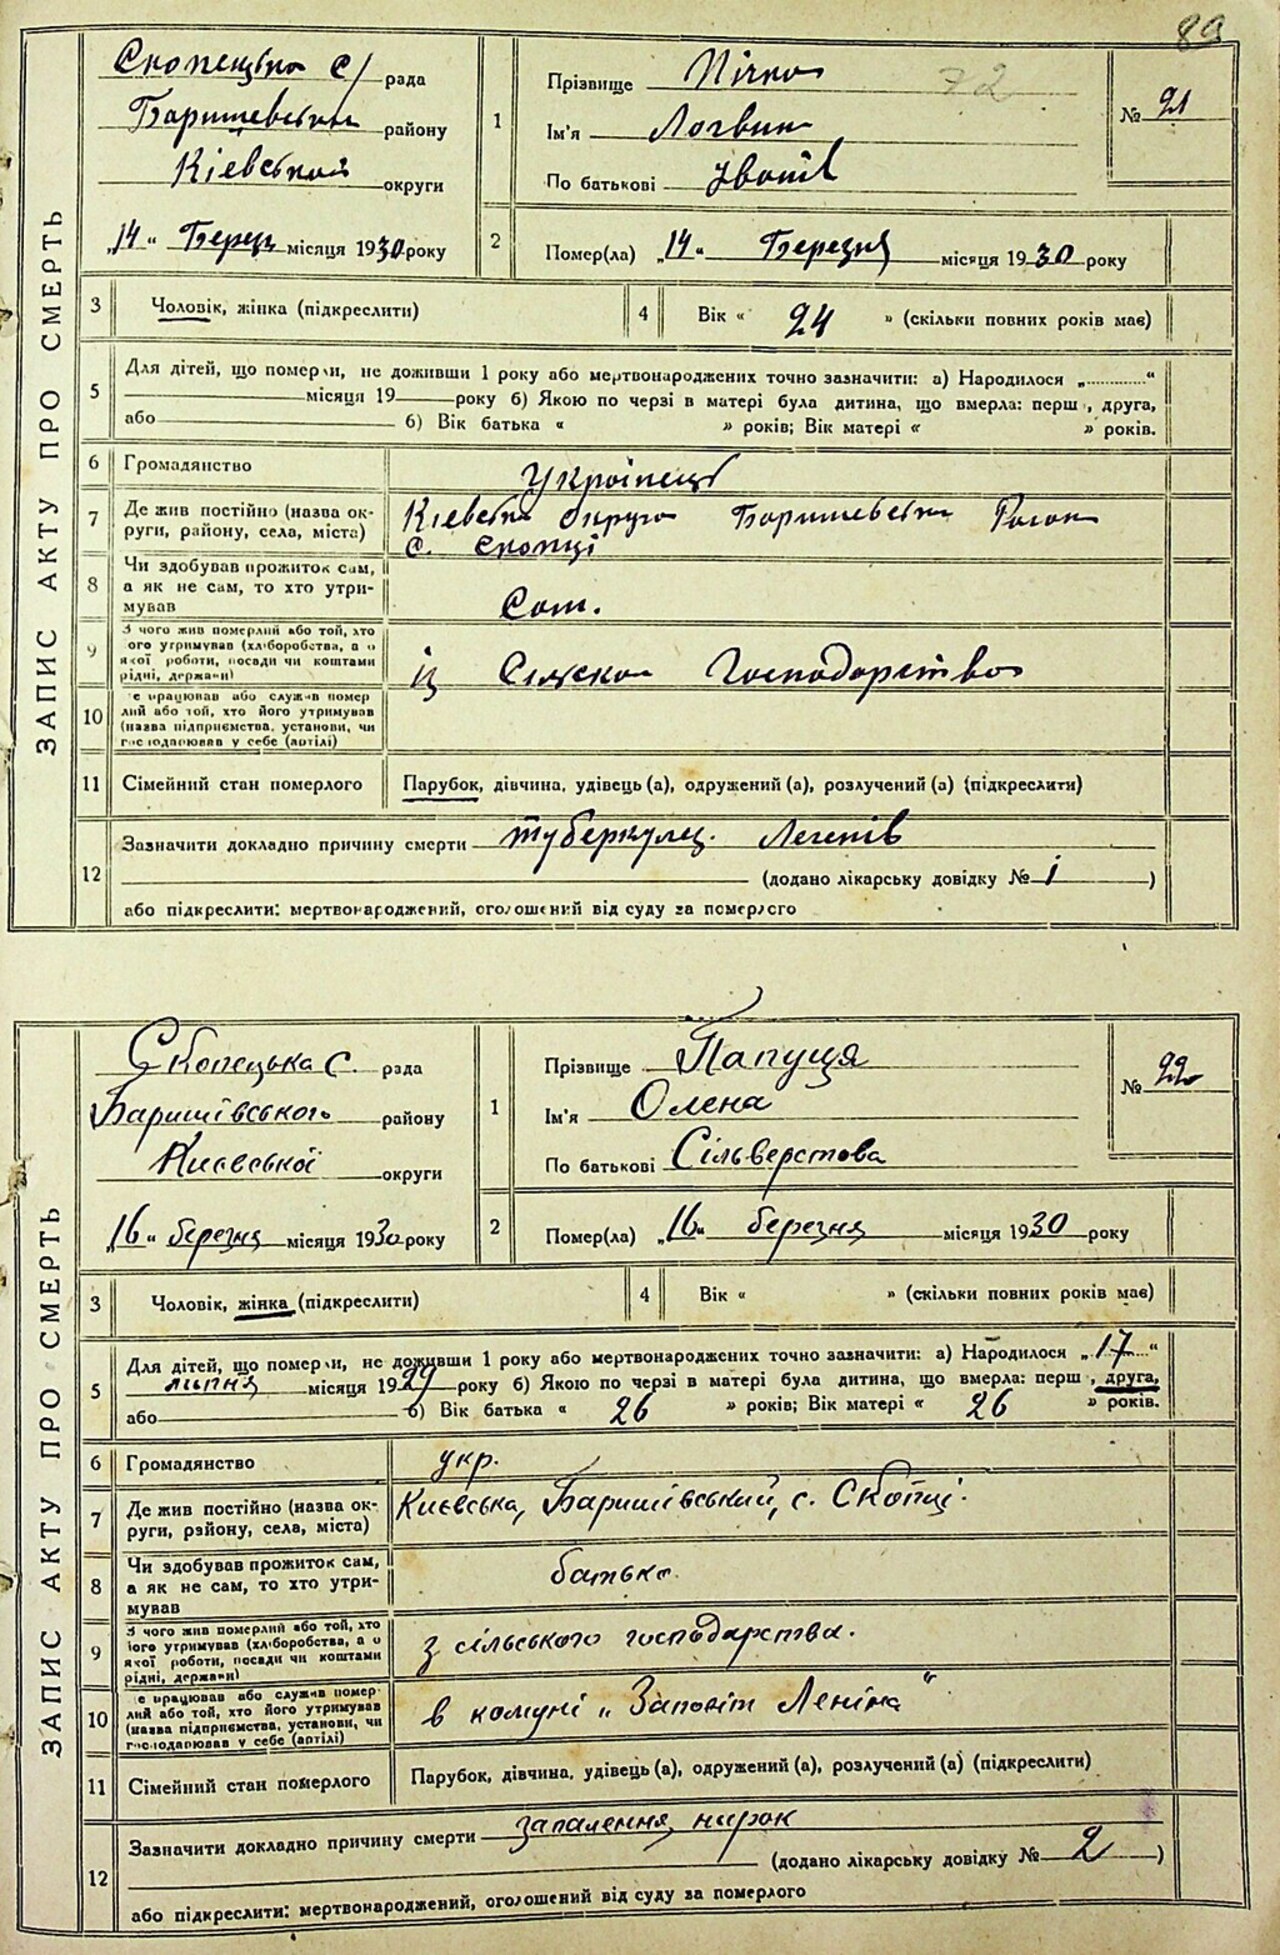 89
ЗАПИС АКТУ ПРО СМЕРТЬ
Скопецька С/ рада
Баришевськи району
Кієвськой округи
„14“ Берец місяця 1930 року
1 Прізвище Пічка 72
Ім'я Логвин
По батькові Іванів
№ 21
2 Помер(ла) „14“ Березня місяця 1930 року
3 Чоловік, жінка (підкреслити)
4 Вік « 24 » (скільки повних років має)
5 Для дітей, що померли, не доживши 1 року або мертвонароджених точно зазначити: а) Народилося „ “
місяця 19 року б) Якою по черзі в матері була дитина, що вмерла: перш , друга,
або б) Вік батька « » років; Вік матері « » років.
6 Громадянство Українець
7 Де жив постійно (назва ок-
руги, району, села, міста)
Кієвська округа Баришевськи Раион
с. Скопці
8 Чи здобував прожиток сам,
а як не сам, то хто утри-
мував
Сам.
9 З чого жив померлий або той, хто
його утримував (хліборобства, а о
якої роботи, посади чи коштами
рідні, держави)
із Сільского Господарства
10 е працював або служив помер
лий або той, хто його утримував
(назва підприємства, установи, чи
господарював у себе (артілі)
11 Сімейний стан померлого Парубок, дівчина, удівець (а), одружений (а), розлучений (а) (підкреслити)
12 Зазначити докладно причину смерти туберкулец. Легенів
(додано лікарську довідку № 1 )
або підкреслити: мертвонароджений, оголошений від суду за померлого
ЗАПИС АКТУ ПРО СМЕРТЬ
Скопецька С. рада
Баришівського району
Києвської округи
„16“ березня місяця 1930 року
1 Прізвище Папуця
Ім'я Олена
По батькові Сільверстова
№ 22
2 Помер(ла) „16“ березня місяця 1930 року
3 Чоловік, жінка (підкреслити)
4 Вік « » (скільки повних років має)
5 Для дітей, що померли, не доживши 1 року або мертвонароджених точно зазначити: а) Народилося „17“
липня місяця 1929 року б) Якою по черзі в матері була дитина, що вмерла: перш , друга,
або б) Вік батька « 26 » років; Вік матері « 26 » років.
6 Громадянство укр.
7 Де жив постійно (назва ок-
руги, району, села, міста)
Києвська, Баришівський, с. Скопці.
8 Чи здобував прожиток сам,
а як не сам, то хто утри-
мував
батько.
9 З чого жив померлий або той, хто
його утримував (хліборобства, а о
якої роботи, посади чи коштами
рідні, держави)
з сільського господарства.
10 е працював або служив помер-
лий або той, хто його утримував
(назва підприємства, установи, чи
господарював у себе (артілі)
в комуні „Заповіт Леніна“
11 Сімейний стан померлого Парубок, дівчина, удівець (а), одружений (а), розлучений (а) (підкреслити)
12 Зазначити докладно причину смерти запалення нирок
(додано лікарську довідку № 2 )
або підкреслити: мертвонароджений, оголошений від суду за померлого